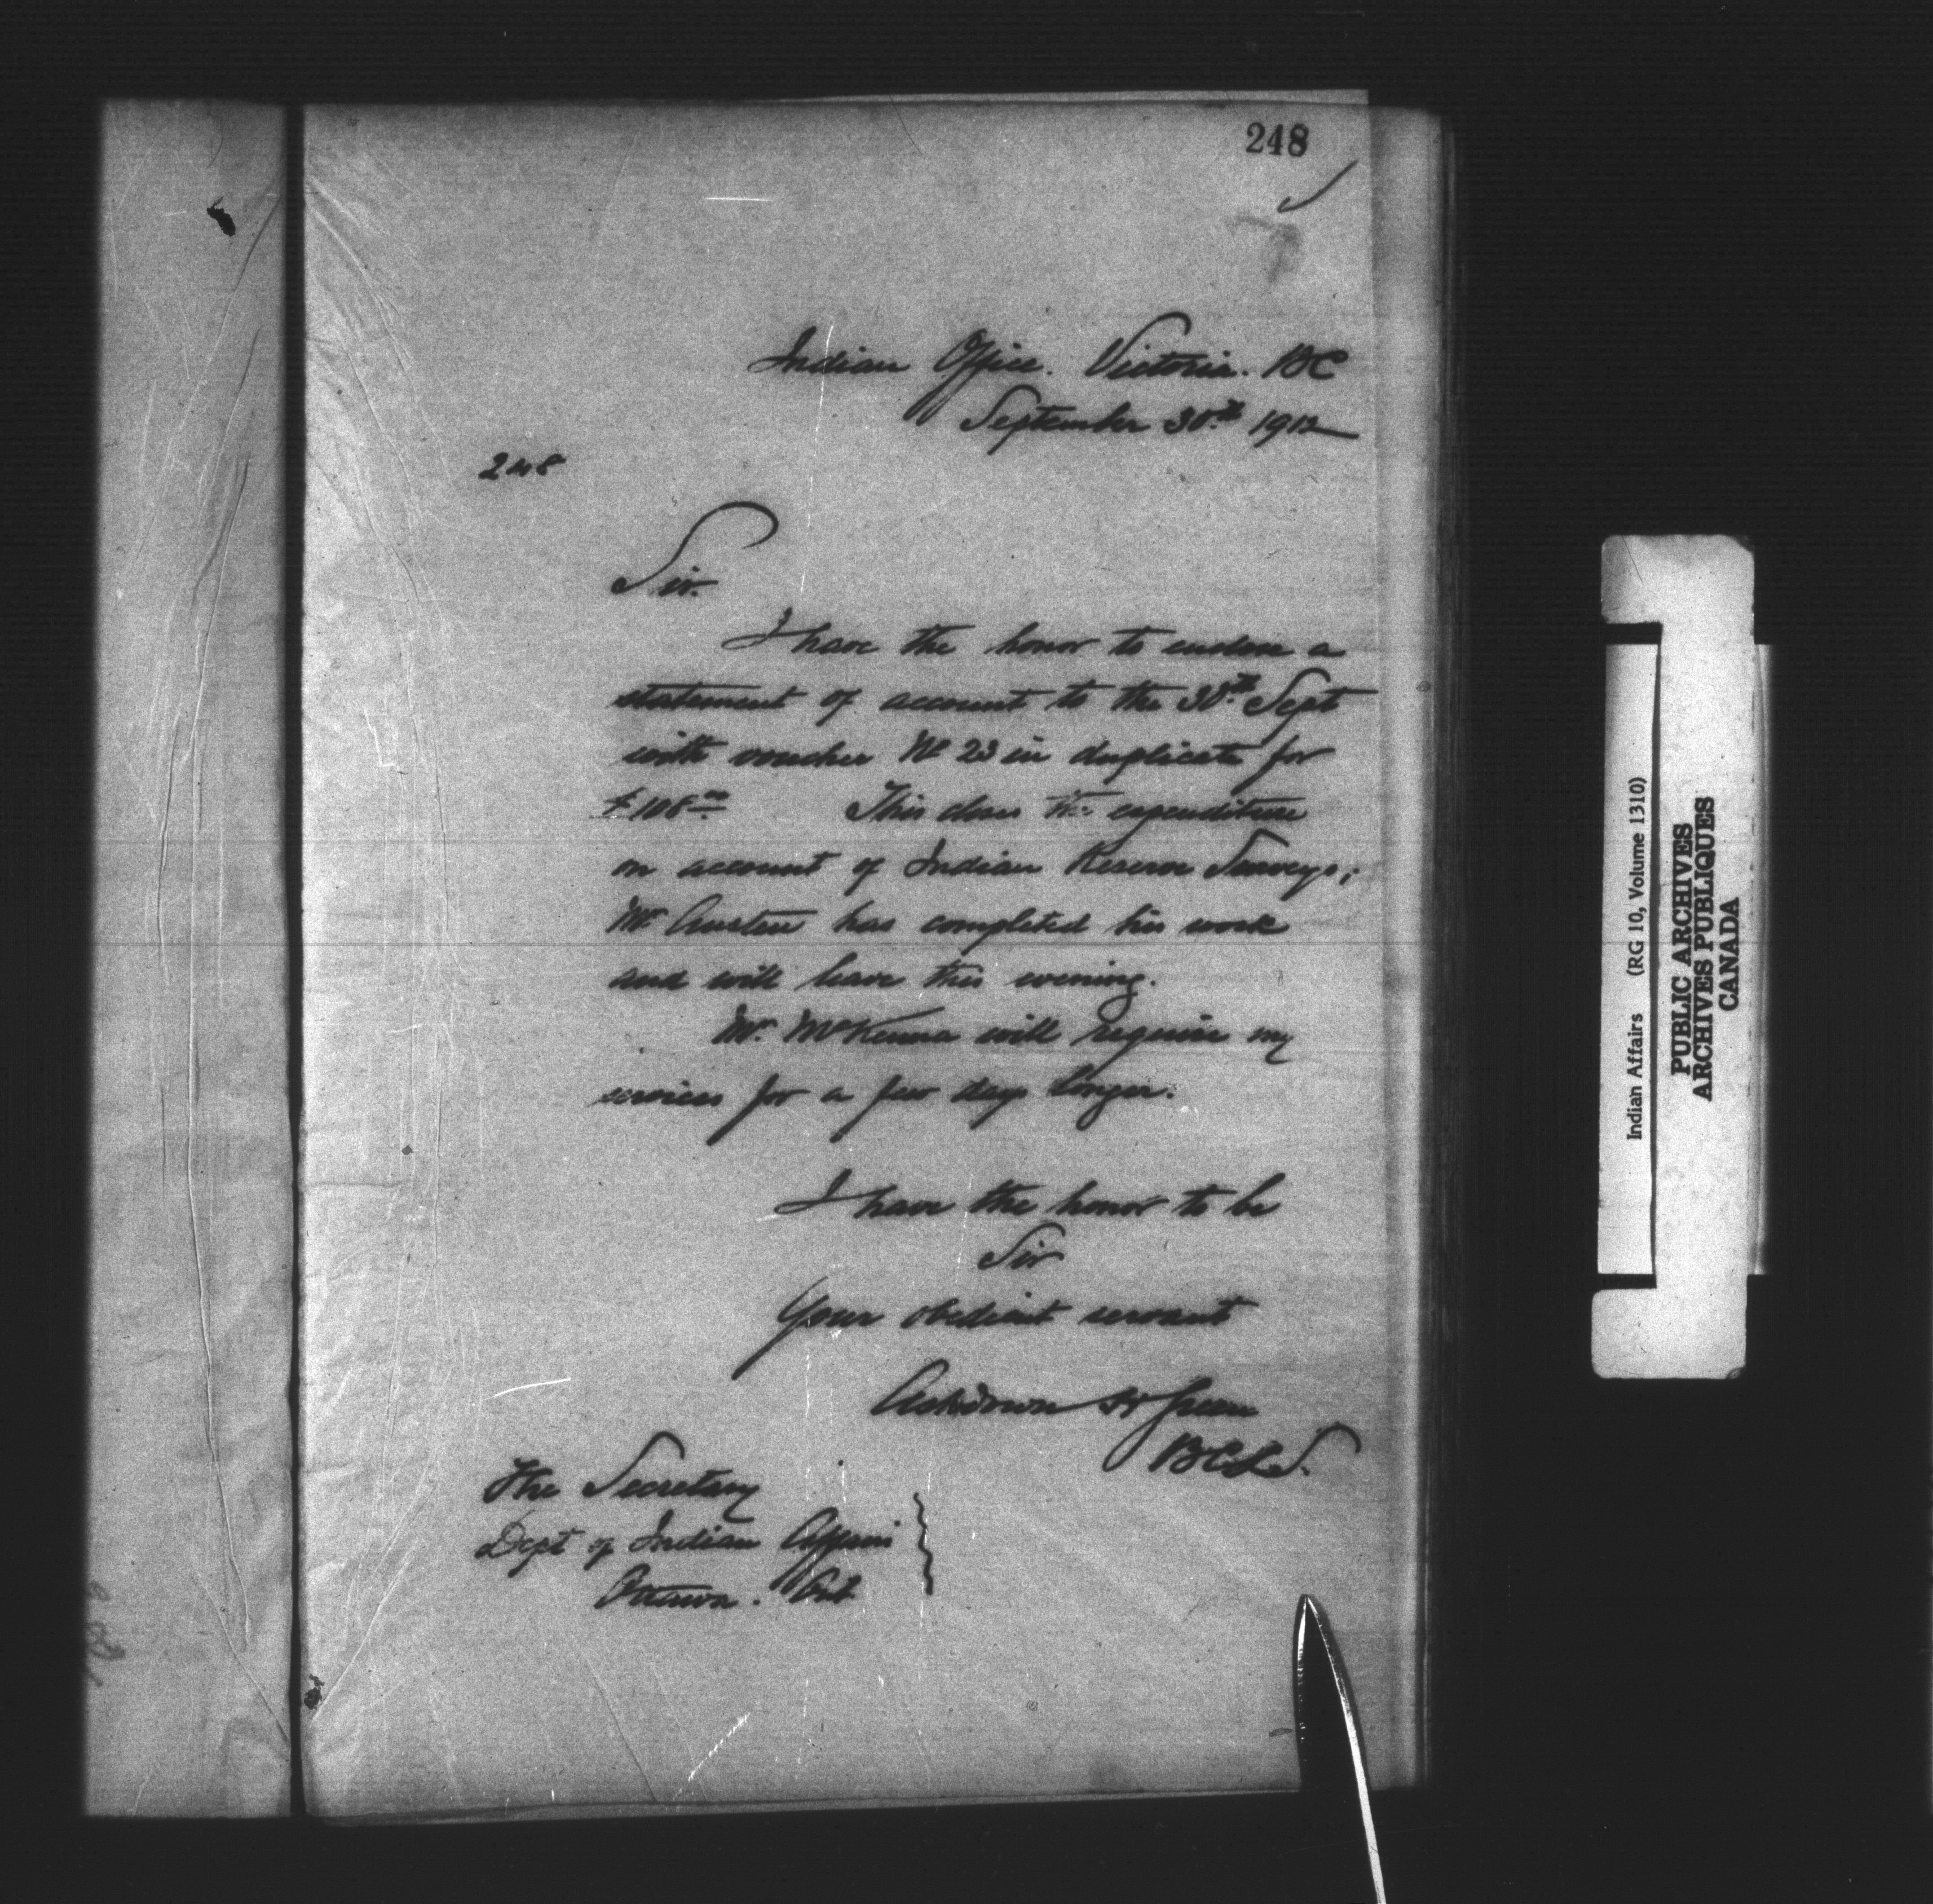 248
Indian Office. Victoria. BC
September 30th 1912
248
Sir.
I have the honor to enclose a
statement of account to the 30th Sept
with voucher No 23 in duplicate for
$108.00 This closes the expenditure
on account of Indian Reserve Surveys;
Mr Austen has completed his work
and will leave this evening.
Mr. McKenna will require my
services for a few days longer.
I have the honor to be
Sir
Your obedient servant
Ashdown H Green
BCLS.
The Secretary
Dept of Indian Affairs
Ottawa. Ont
Indian Affairs (RG 10, Volume 1310)
PUBLIC ARCHIVES
ARCHIVES PUBLIQUES
CANADA